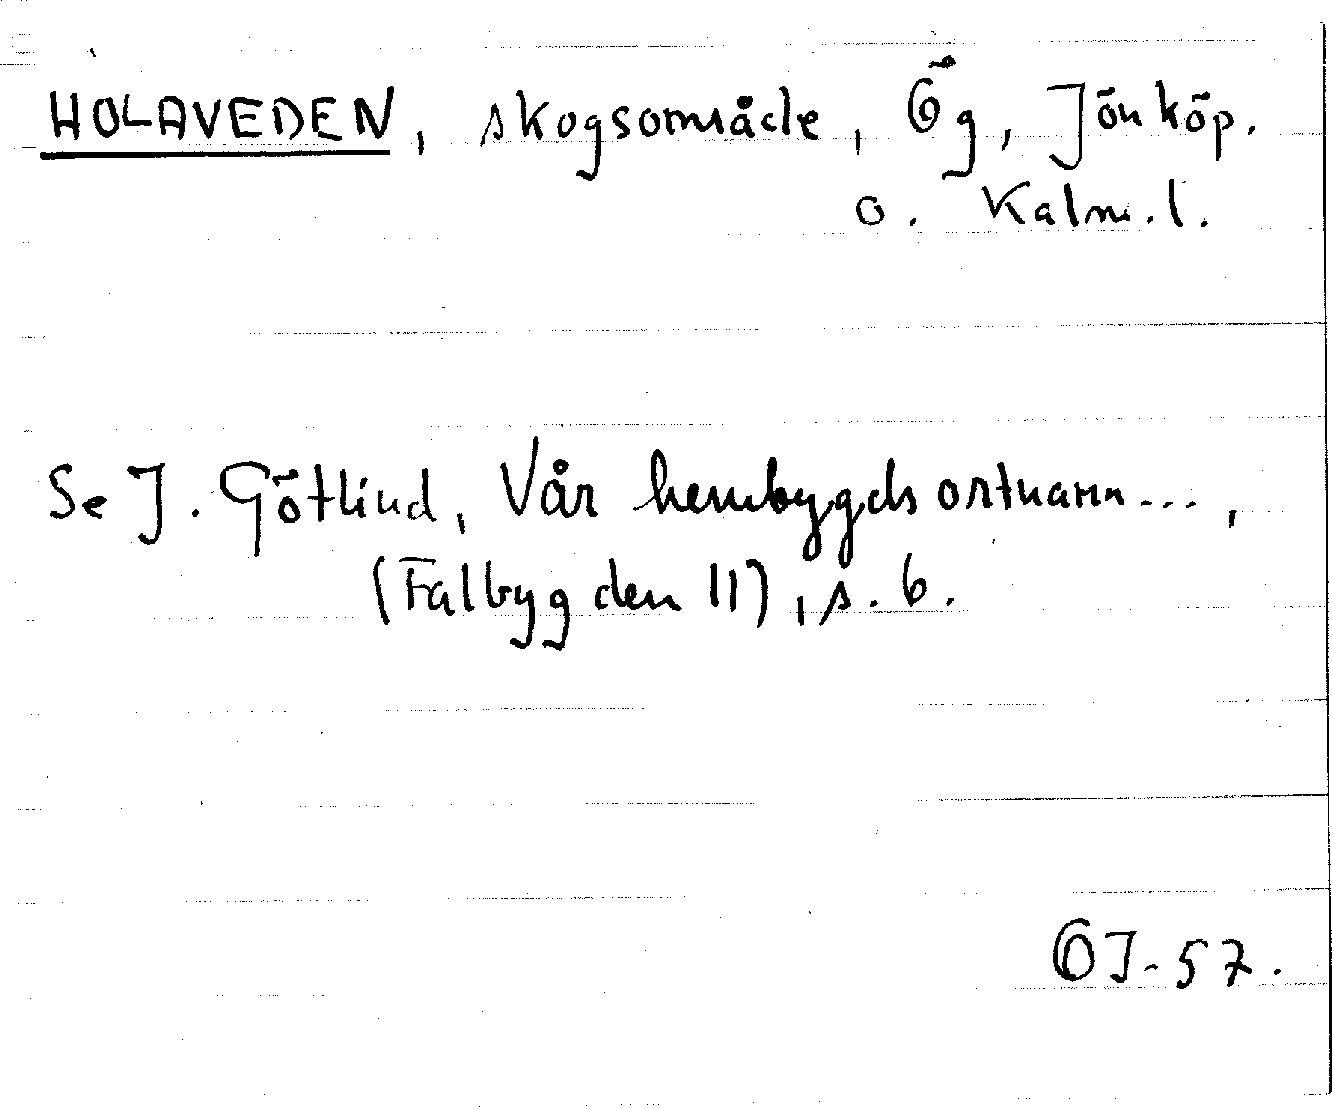 HOLAVEDEN, skogsområde, Ög, Jönköp.
o. Kalm. l.
Se J. Götlind, Vår hembygds ortnamn...,
(Falbygden 11), s. 6.
OJ-57.